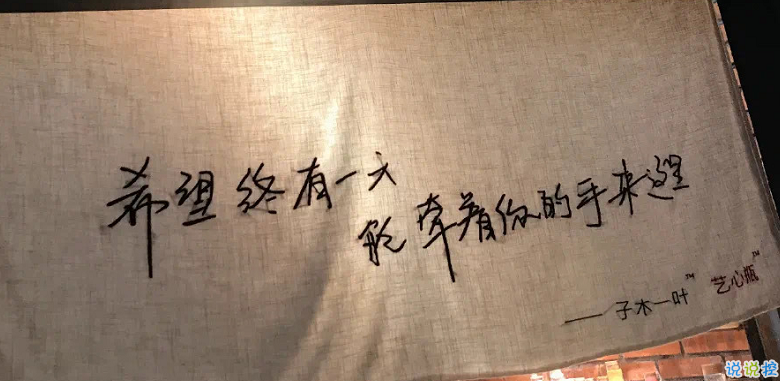 希望终有一天
能牵着你的手来这里
——子木一叶™ 艺心瓶™
说说控